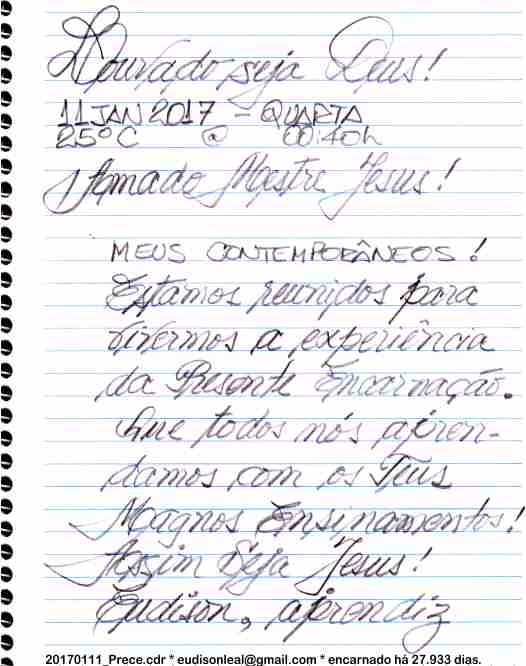 Louvado seja Deus!
11 JAN 2017 - QUARTA
25ºC @ 00:40h
Amado Mestre Jesus!
MEUS CONTEMPORÂNEOS!
Estamos reunidos para
vivermos a experiência
da Presente Encarnação.
Que todos nós apren-
damos com os Teus
Magnos Ensinamentos!
Assim Seja Jesus!
Eudison, aprendiz
20170111_Prece.cdr * eudisonleal@gmail.com * encarnado há 27.933 dias.